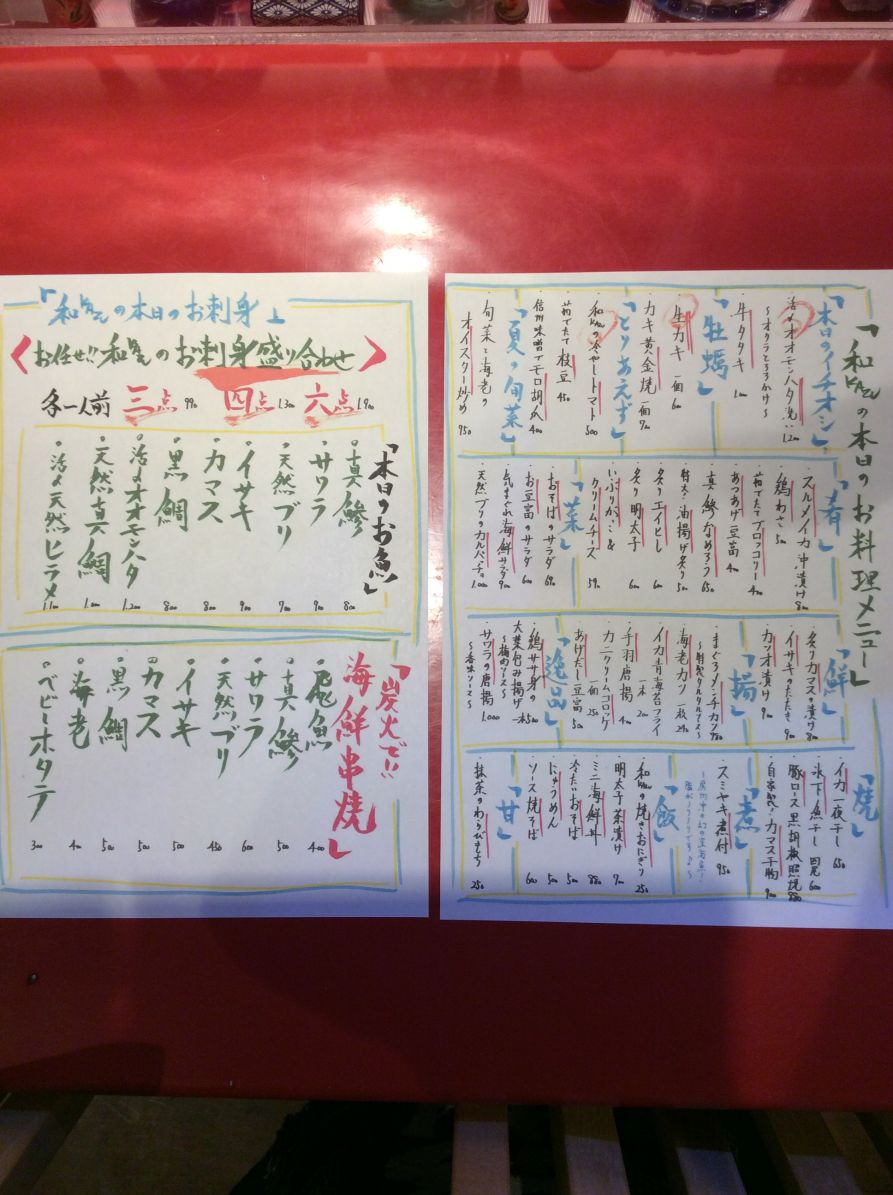 「和KAZの本日のお料理メニュー」
「本日のイチオシ」
活〆オオモンハタ洗い 1.200
～オクラとろろかけ～
牛タタキ 1.000
「牡蠣」
生カキ 一個 600
カキ黄金焼 一個 700
「とりあえず」
和KAZの冷やしトマト 500
茹でたて枝豆 450
信州味噌でモロ胡瓜 400
「夏の旬菜」
旬菜と海老の
オイスター炒め 950
「肴」
スルメイカ沖漬け 800
鶏わさ 500
茹でたてブロッコリー 400
あつあげ豆富 400
真鯵なめろう 650
特大・油揚げ炙り 500
炙りエイヒレ 600
炙り明太子 600
いぶりがっこ&
クリームチーズ 590
「菜」
おそばのサラダ 680
お豆富のサラダ 680
気まぐれ海鮮サラダ 900
天然ブリのカルパッチョ 1.000
「鮮」
炙りカマス漬け 800
イサキのたたき 900
カツオ漬け 900
「揚」
まぐろメンチカツ 780
～特製タルタルで～
海老カツ 一枚 290
イカ青海苔フライ
手羽唐揚 一本 200
カニクリームコロッケ 一個 250
あげだし豆富 500
「逸品」
鶏ササ身の
大葉包み揚げ 一本 450
～梅肉ソース～
サワラの唐揚 1.000
～香味ソース～
「焼」
イカ一夜干し 650
氷下魚干し 四尾 600
豚ロース黒胡椒照焼 880
自家製・カマス干物 900
「煮」
スミヤキ煮付 950
「飯」
和KAZの焼きおにぎり 250
明太子茶漬け 700
ミニ海鮮丼 880
冷たいおそば 500
にゅうめん 500
ソース焼そば 600
「甘」
抹茶のわらびもち 250
「和KAZの本日のお刺身」
〈お任せ!!和KAZのお刺身盛り合わせ〉
各一人前 三点 990 四点 1.300 六点 1.900
「本日のお魚」
真鯵 800
サワラ 900
天然ブリ 900
イサキ 900
カマス 800
黒鯛 800
活〆オオモンハタ 1.200
天然真鯛 1.000
活〆天然ヒラメ 1.100
「炭火で!!
海鮮串焼」
飛魚 400
真鯵 500
サワラ 600
天然ブリ 450
イサキ 500
カマス 500
黒鯛 500
海老 400
ベビーホタテ 300